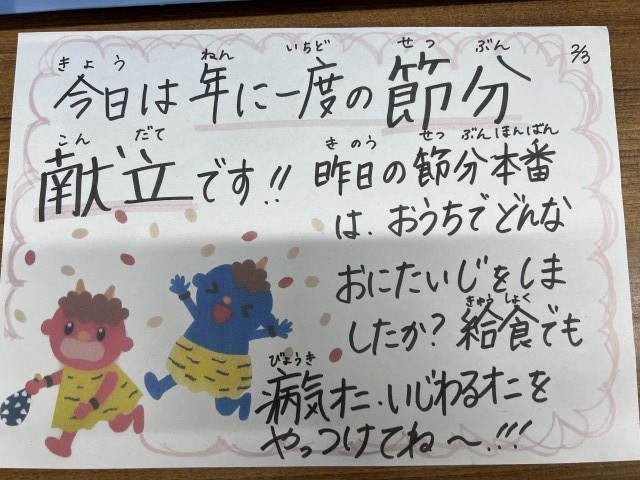 2/3
きょう ねん いちど せつ ぶん
今日は年に一度の節分
こん だて きのう せつ ぶんほんばん
献立です!! 昨日の節分本番
は、おうちでどんな
おにたいじをしま
したか? 給食でも
きゅうしょく
びょうき
病気オニ・いじわるオニを
やっつけてね〜!!!